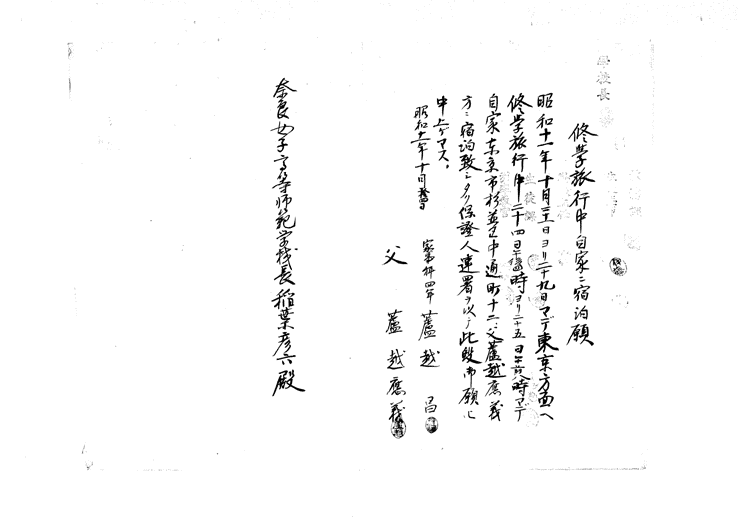 修學旅行中自家ニ宿泊願
昭和十一年十月二十二日ヨリ二十九日マデ東京方面ヘ
修學旅行中二十四日午後四時ヨリ二十五日午後八時マデ
自家東京市杉並区中通町十二、父蘆越應義
方ニ宿泊致シタク保證人連署ヲ以テ此段御願ヒ
申上ゲマス。
昭和十一年十月
蘆越 昌
父 蘆越應義
奈良女子高等師範学校長稲葉彦六殿
學校長